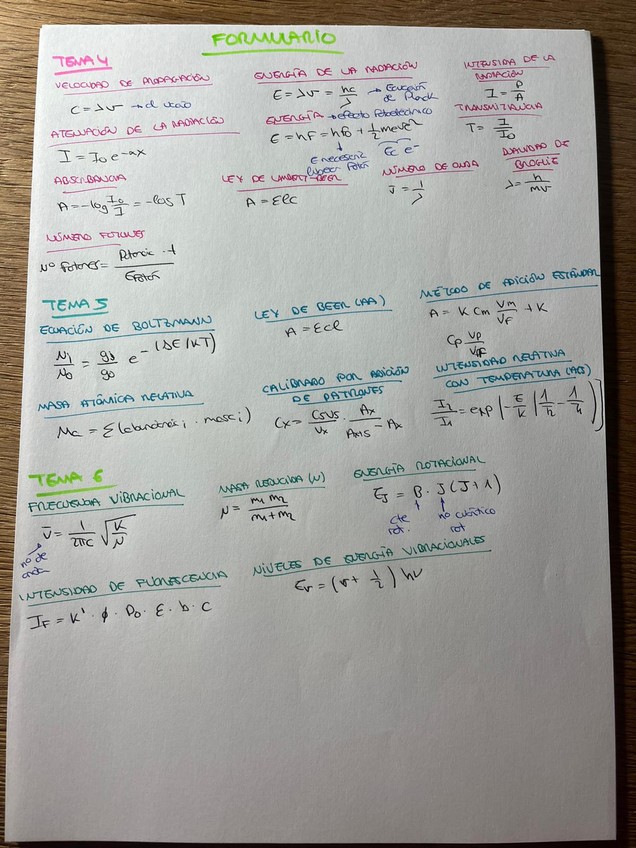 FORMULARIO
TEMA 4
VELOCIDAD DE PROPAGACIÓN
C = λν → el vacío
ENERGÍA DE LA RADIACIÓN
E = λν = hc/λ → Ecuación de Planck
INTENSIDAD DE LA RADIACIÓN
I = P/A
ATENUACIÓN DE LA RADIACIÓN
I = I₀ e^-ax
ENERGÍA → efecto fotoeléctrico
E = hF = hF₀ + 1/2 meve²
E necesaria
Ec e⁻
TRANSMITANCIA
T = I/I₀
ABSORBANCIA
A = -log I₀/I = -log T
LEY DE LAMBERT-BEER
A = εlc
NÚMERO DE ONDA
ν̄ = 1/λ
DUALIDAD DE BROGLIE
λ = h/mv
NÚMERO FOTONES
Nº Fotones = Potencia · t / E fotón
TEMA 5
ECUACIÓN DE BOLTZMANN
N₁/N₀ = g₁/g₀ e^-(ΔE/KT)
LEY DE BEER (AA)
A = εcl
MÉTODO DE ADICIÓN ESTÁNDAR
A = K Cm Vm/VF + K
Cp Vp/VF
MASA ATÓMICA RELATIVA
Ma = Σ(abundancia i · masa i)
CALIBRADO POR ADICIÓN DE PATRONES
Cx = CsVs/Vx · Ax/Ax+s - Ax
INTENSIDAD RELATIVA
CON TEMPERATURA (ACS)
I₂/I₁ = exp[-E/K (1/T₂ - 1/T₁)]
TEMA 6
FRECUENCIA VIBRACIONAL
ν̄ = 1/2πc √K/μ
nº de onda
MASA REDUCIDA (μ)
μ = m₁m₂/m₁+m₂
ENERGÍA ROTACIONAL
EJ = B · J(J+1)
cte rot.
no cuántico rot
INTENSIDAD DE FLUORESCENCIA
IF = K' · φ · P₀ · ε · b · c
NIVELES DE ENERGÍA VIBRACIONALES
Ev = (v + 1/2) hν